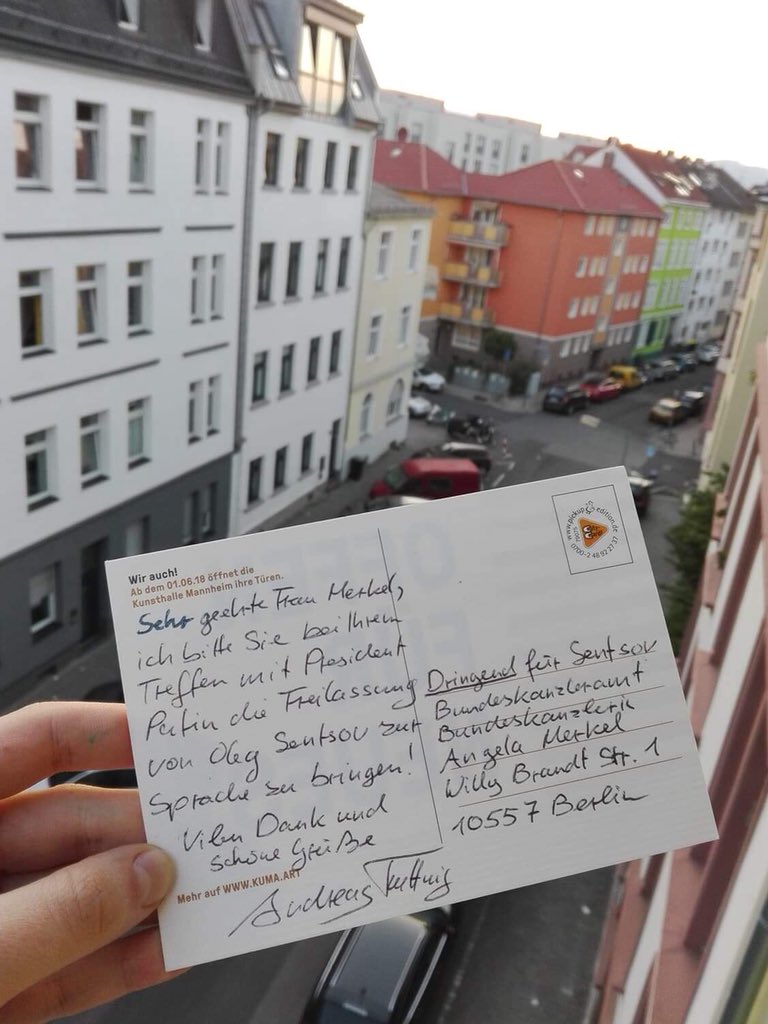 Wir auch!
Ab dem 01.06.18 öffnet die
Kunsthalle Mannheim ihre Türen.
Sehr geehrte Frau Merkel,
ich bitte Sie bei Ihrem
Treffen mit President
Putin die Freilassung
von Oleg Sentsov zur
Sprache zu bringen!
Vilen Dank und
schöne Grüße
Mehr auf WWW.KUMA.ART
Andreas
www.pickup-edition.de
Dringend für Sentsov
Bundeskanzleramt
Bundeskanzlerin
Angela Merkel
Willy Brandt Str. 1
10557 Berlin